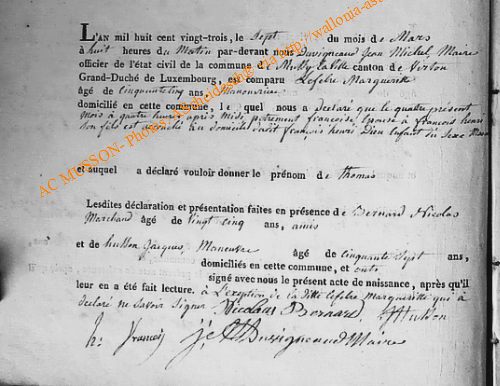 L'AN mil huit cent vingt-trois, le Sept du mois de Mars
à huit heures du Matin par-devant nous Duvigneaud Jean Michel Maire
officier de l'état civil de la commune de Mussy la Ville canton de Virton
Grand-Duché de Luxembourg, est comparu Lefebre Margueritte
âgé de cinquante cinq ans, 
domicilié en cette commune, le quel nous a déclaré que le quatre présent
mois à quatre heures après midi, françoise, Epouse à françois henri
son fils est accouché au domicile dudit françois henri D'un Enfant du Sexe
et auquel a déclaré vouloir donner le prénom de thomas
Lesdites déclaration et présentation faites en présence de Bernard Nicolas
Marchand âgé de vingt cinq ans, amis
et de husson Jacques Maneuvre âgé de cinquante Sept ans,
domiciliés en cette commune, et onts
signé avec nous le présent acte de naissance, après qu'il
leur en a été fait lecture. à l'exeption de la ditte lefebre Margueritte qui a
déclaré ne savoir signer Nicolas Bernard J Husson
h. francois j. M Duvigneaud Maire
AC MUSSON- Photo. Archeldessing via http://wallonia-as